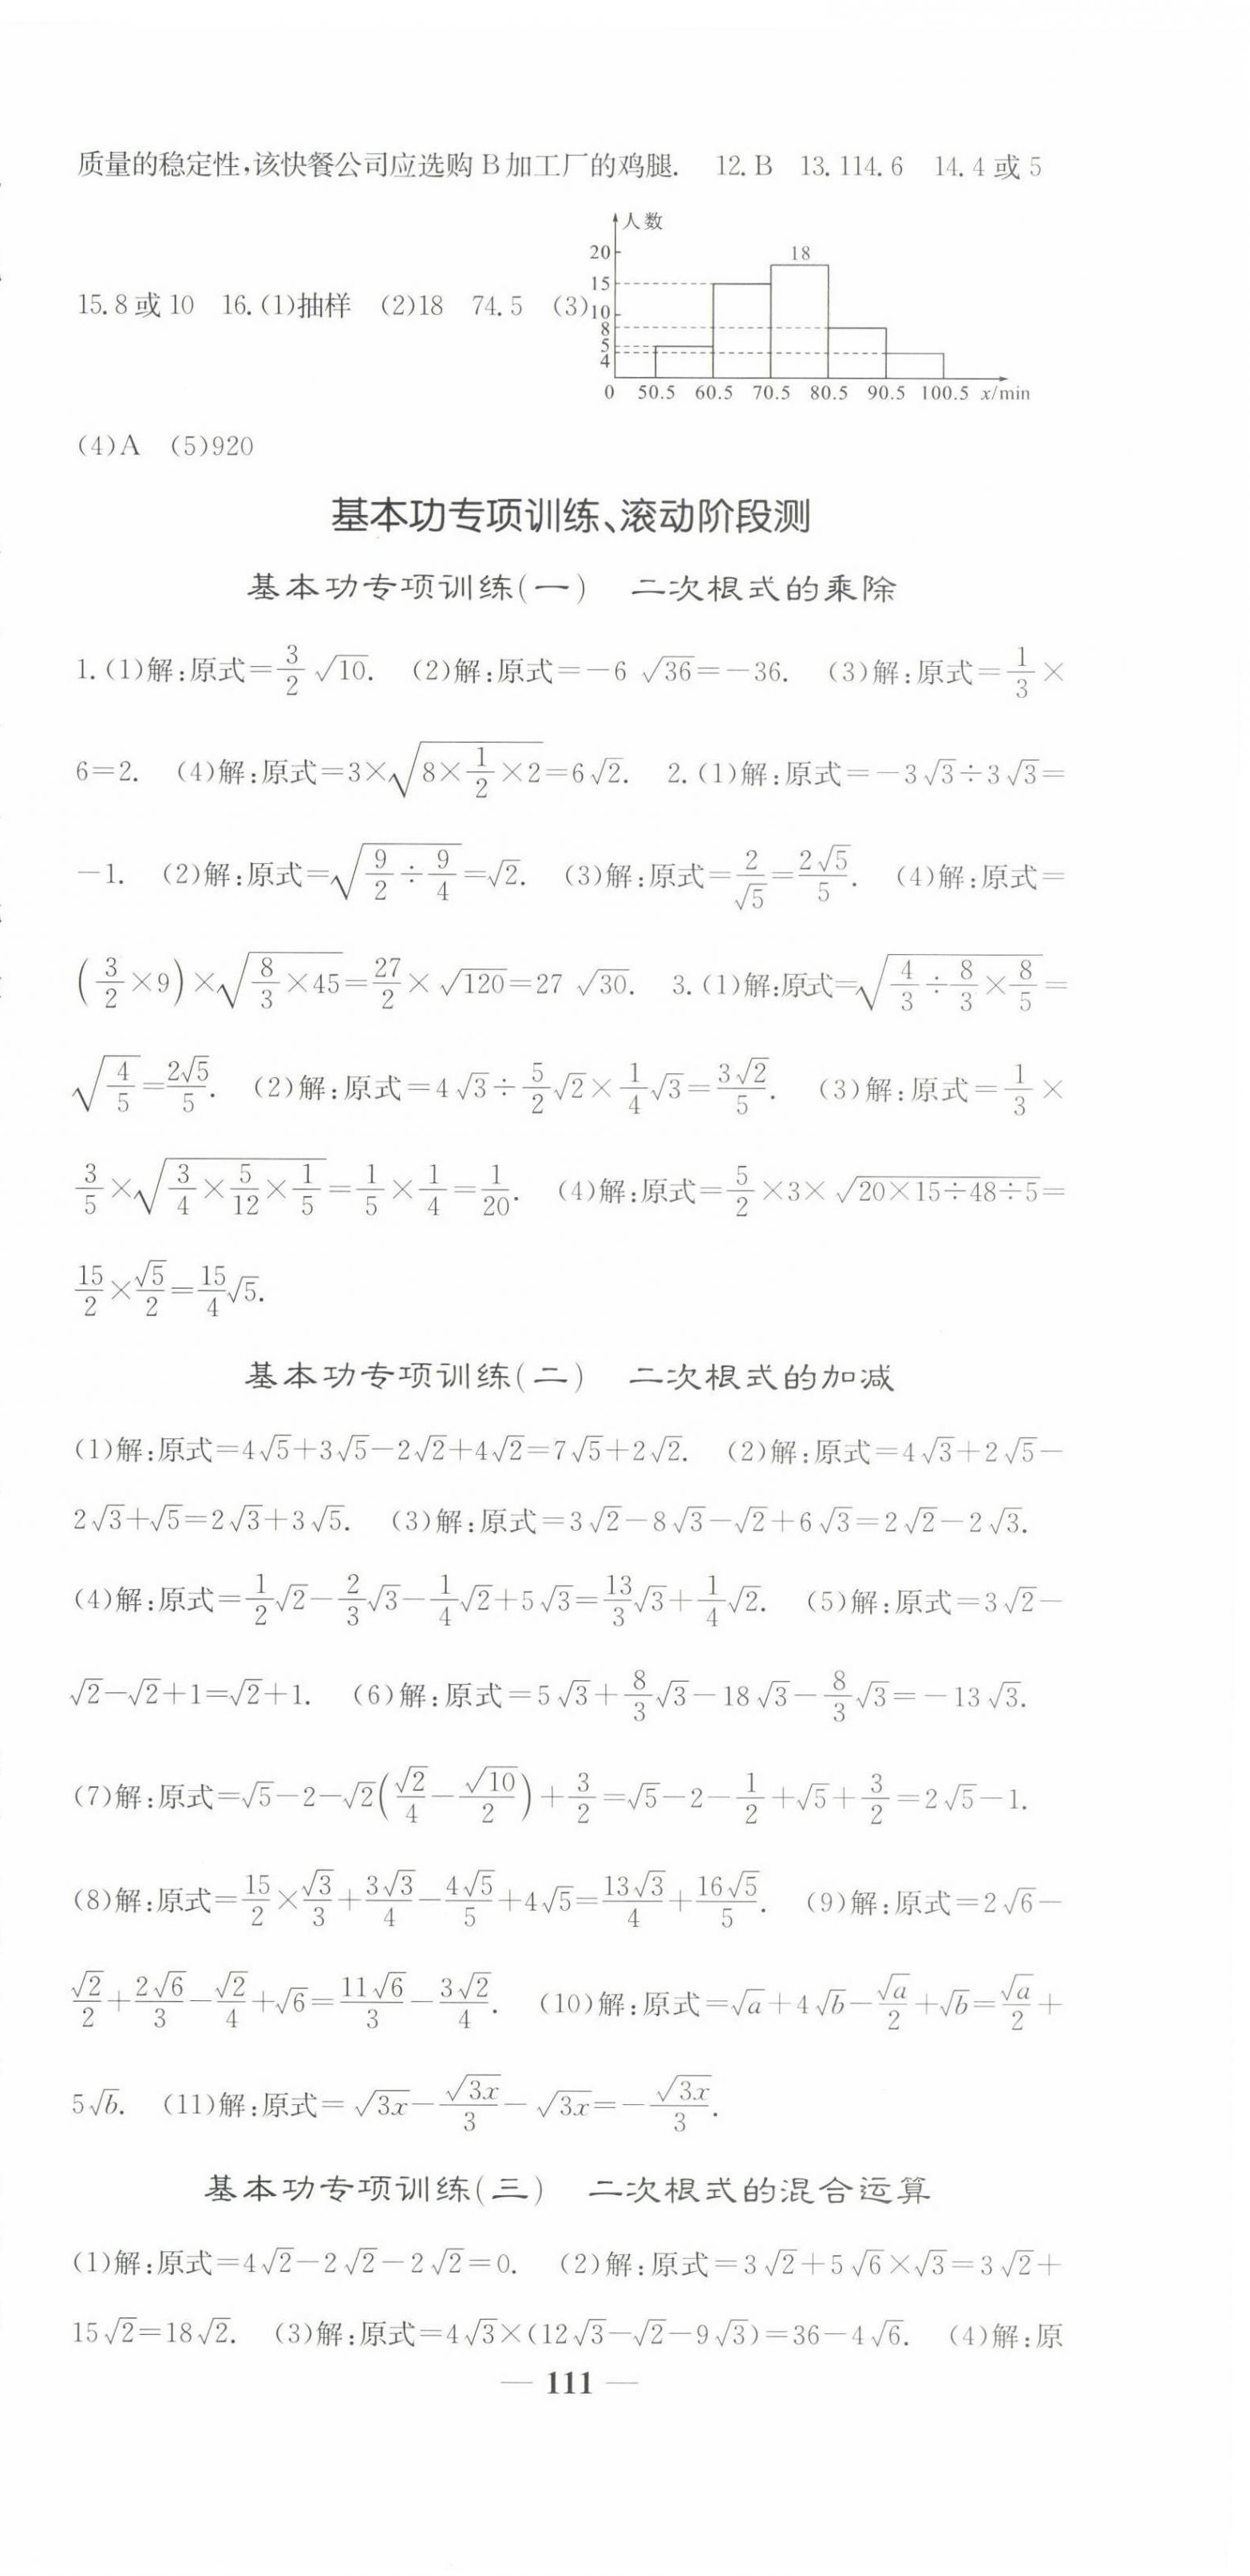 质量的稳定性,该快餐公司应选购B加工厂的鸡腿. 12.B 13.114.6 14.4或5
15.8或10 16.(1)抽样 (2)18 74.5 (3)
人数
20
18
15
10
8
5
4
0 50.5 60.5 70.5 80.5 90.5 100.5 x/min
(4)A (5)920
基本功专项训练、滚动阶段测
基本功专项训练(一) 二次根式的乘除
1.(1)解:原式=3/2 √10. (2)解:原式=-6 √36=-36. (3)解:原式=1/3×
6=2. (4)解:原式=3×√(8×1/2×2)=6√2. 2.(1)解:原式=-3√3÷3√3=
-1. (2)解:原式=√(9/2÷9/4)=√2. (3)解:原式=2/√5=2√5/5. (4)解:原式=
(3/2×9)×√(8/3×45)=27/2×√120=27 √30. 3.(1)解:原式=√(4/3÷8/3×8/5)=
√(4/5)=2√5/5. (2)解:原式=4√3÷5/2√2×1/4√3=3√2/5. (3)解:原式=1/3×
3/5×√(3/4×5/12×1/5)=1/5×1/4=1/20. (4)解:原式=5/2×3×√(20×15÷48÷5)=
15/2×√5/2=15/4√5.
基本功专项训练(二) 二次根式的加减
(1)解:原式=4√5+3√5-2√2+4√2=7√5+2√2. (2)解:原式=4√3+2√5-
2√3+√5=2√3+3√5. (3)解:原式=3√2-8√3-√2+6√3=2√2-2√3.
(4)解:原式=1/2√2-2/3√3-1/4√2+5√3=13/3√3+1/4√2. (5)解:原式=3√2-
√2-√2+1=√2+1. (6)解:原式=5√3+8/3√3-18√3-8/3√3=-13√3.
(7)解:原式=√5-2-√2(√2/4-√10/2)+3/2=√5-2-1/2+√5+3/2=2√5-1.
(8)解:原式=15/2×√3/3+3√3/4-4√5/5+4√5=13√3/4+16√5/5. (9)解:原式=2√6-
√2/2+2√6/3-√2/4+√6=11√6/3-3√2/4. (10)解:原式=√a+4√b-√a/2+√b=√a/2+
5√b. (11)解:原式=√3x-√3x/3-√3x=-√3x/3.
基本功专项训练(三) 二次根式的混合运算
(1)解:原式=4√2-2√2-2√2=0. (2)解:原式=3√2+5√6×√3=3√2+
15√2=18√2. (3)解:原式=4√3×(12√3-√2-9√3)=36-4√6. (4)解:原
— 111 —